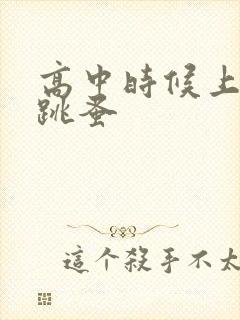 高中時候上
跳蚤
這个殺手不太